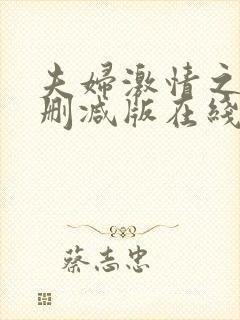 夫婦激情之
刪減版在綫
蔡志忠